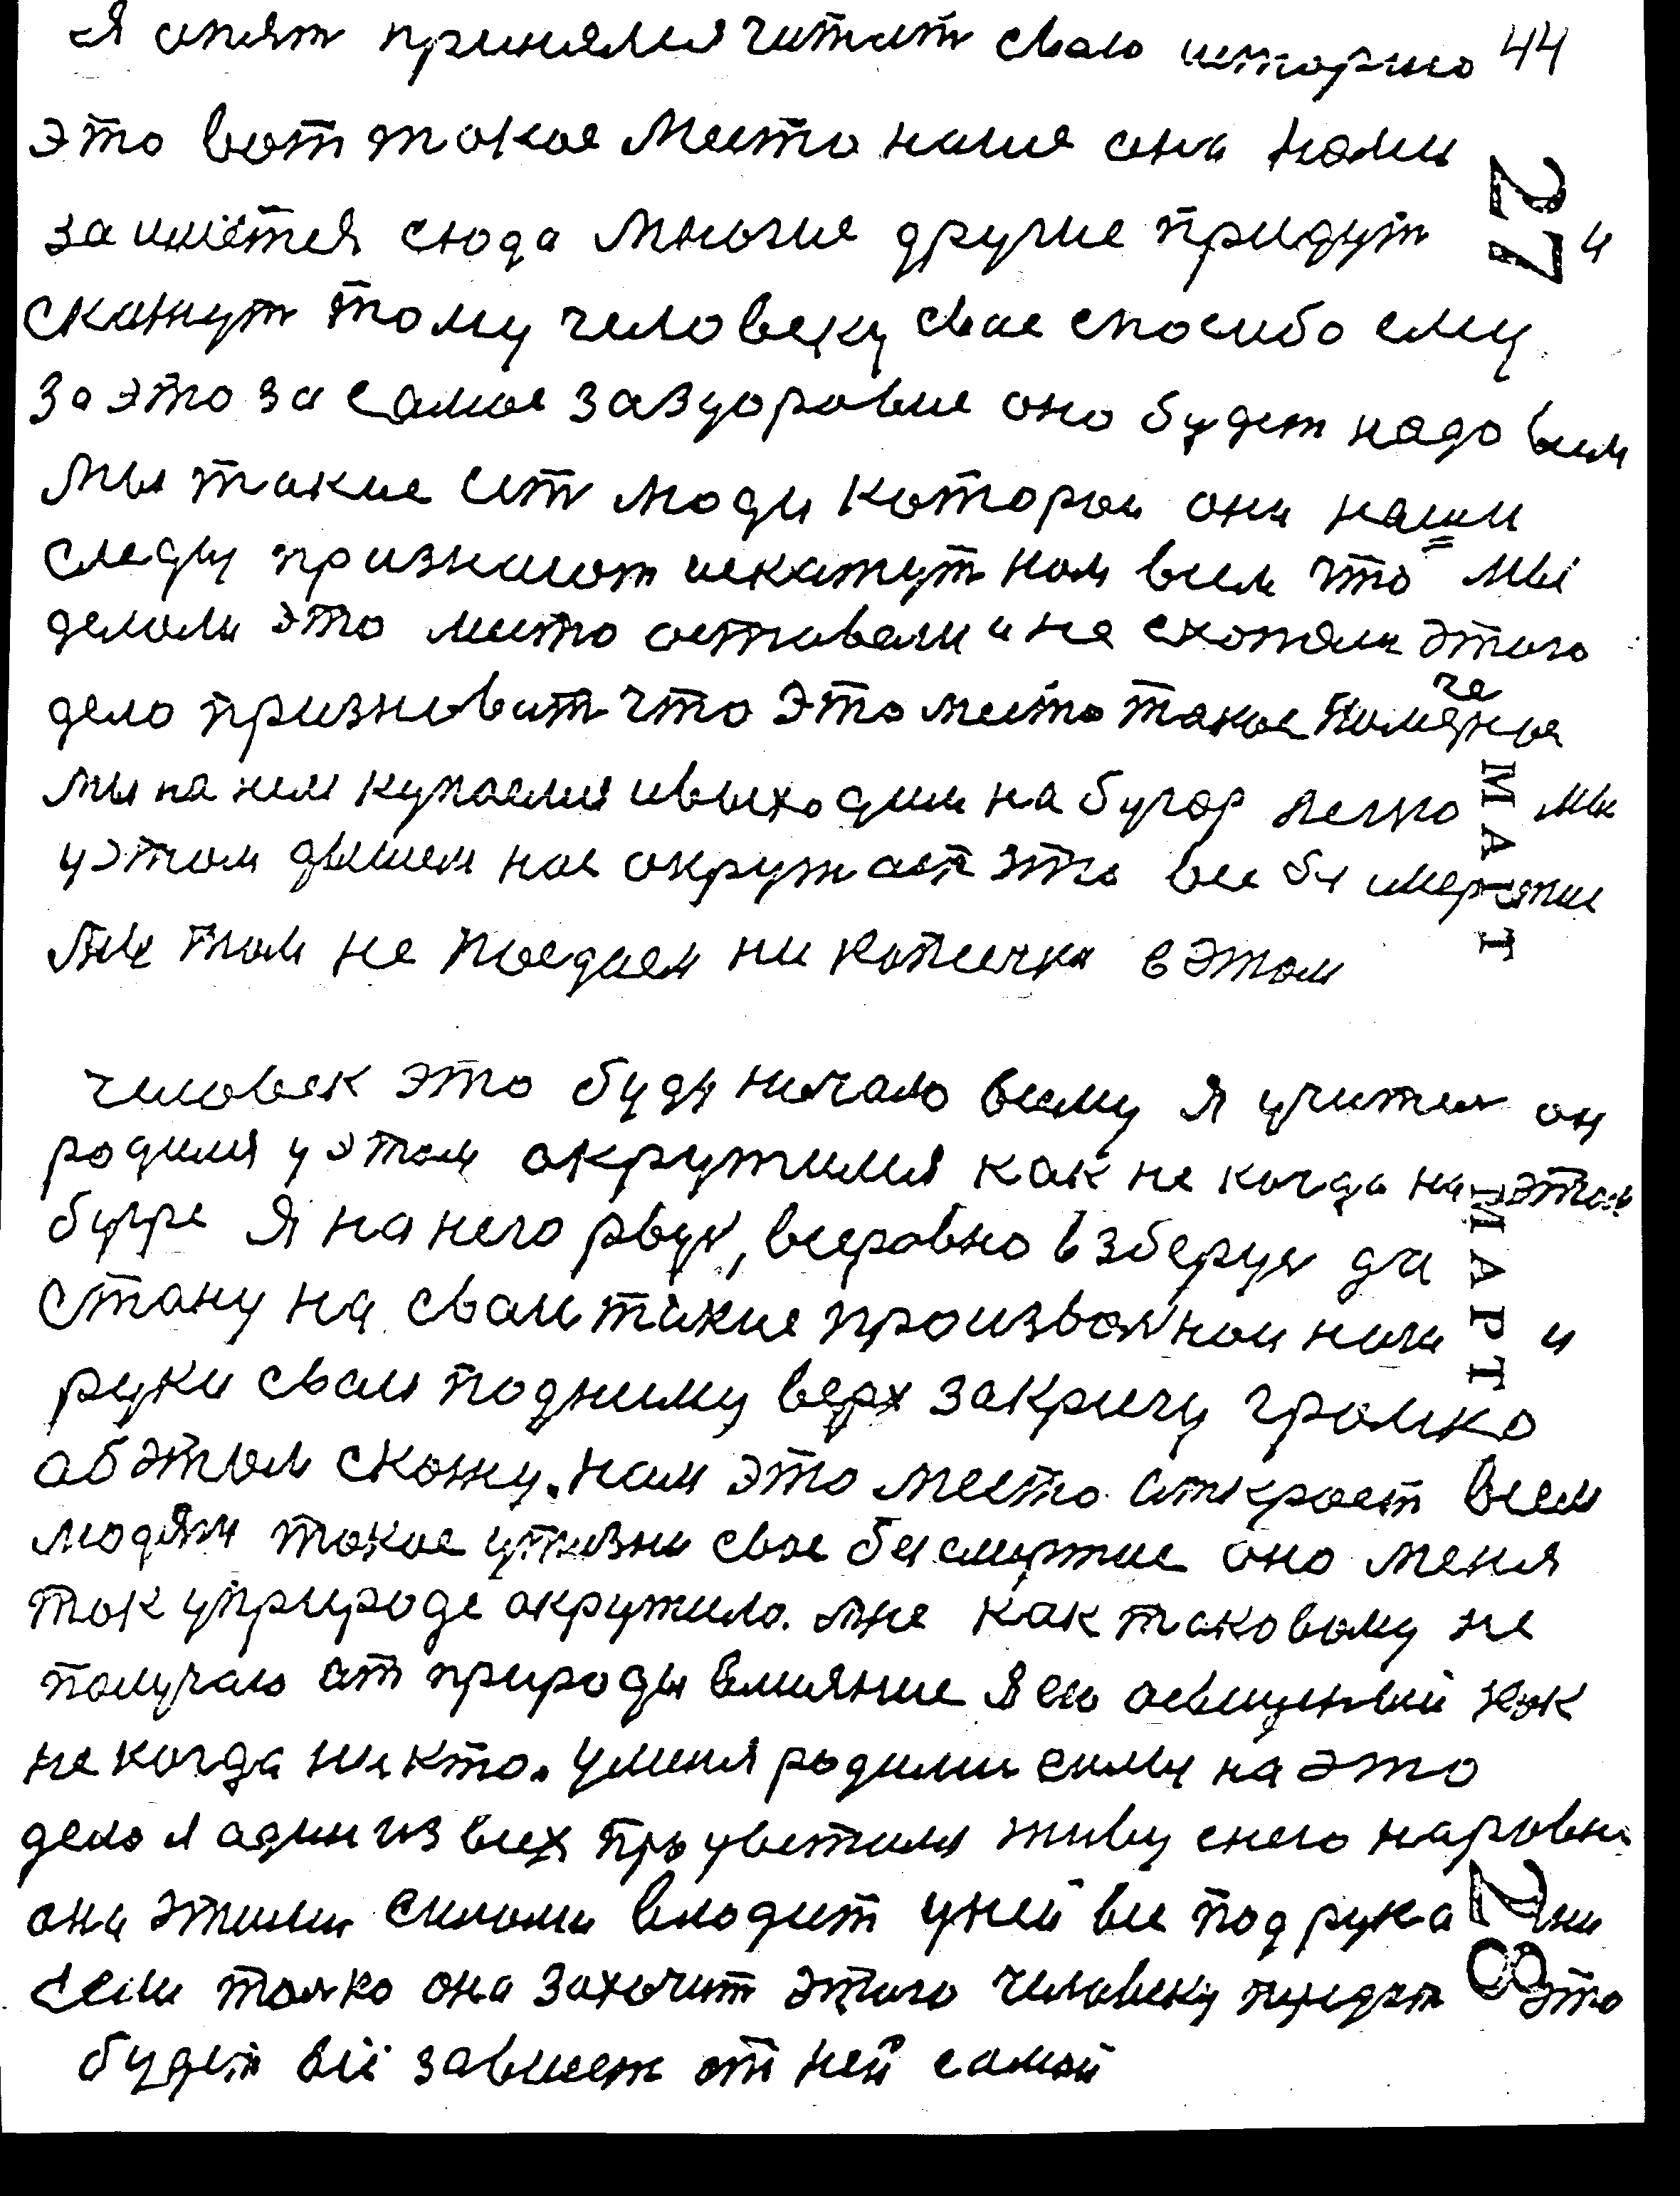 Я опят принялся читат сваю историю 44
это вот такое место наше она нами
27
зачнётся сюда многие другие придут и
скажут тому человеку свае спосибо ему
за это за самое заздоровие оно будет надо всем
мы такие ст люди которои они наши
следы признают искажут нам всем что мы
делали это место оставели и не схотели этого
дело призноват что это место такое помеченое
мы на нем купаемся ивыходим на бугор легко мы
МАРТ
уэтом дышем нас окружает это все бесмертие
Мы там не поедаем ни копеечки в этом
человек это буду начало всему я учител он
родился уэтом окружился как не когда на этом
бугре Я на него рвус, всеровно взберус да
МАРТ
стану на сваи такие произволнои наги и
руки сваи подниму верх закричу громко
аб этом скажу. нам это место аткроет всем
людям такое ужизни свое бесмертие оно меня
так уприроде окружило. мне как таковому не
получаю от природы влияние Я ею освещеный как
не когда никто. уменя родили силы на это
дело я один из всех процветился живу снею наровни
она этими силами владеет уней все под руками
28
если толко она захочит этого человеку передат это
будет всё зависет от ней самой